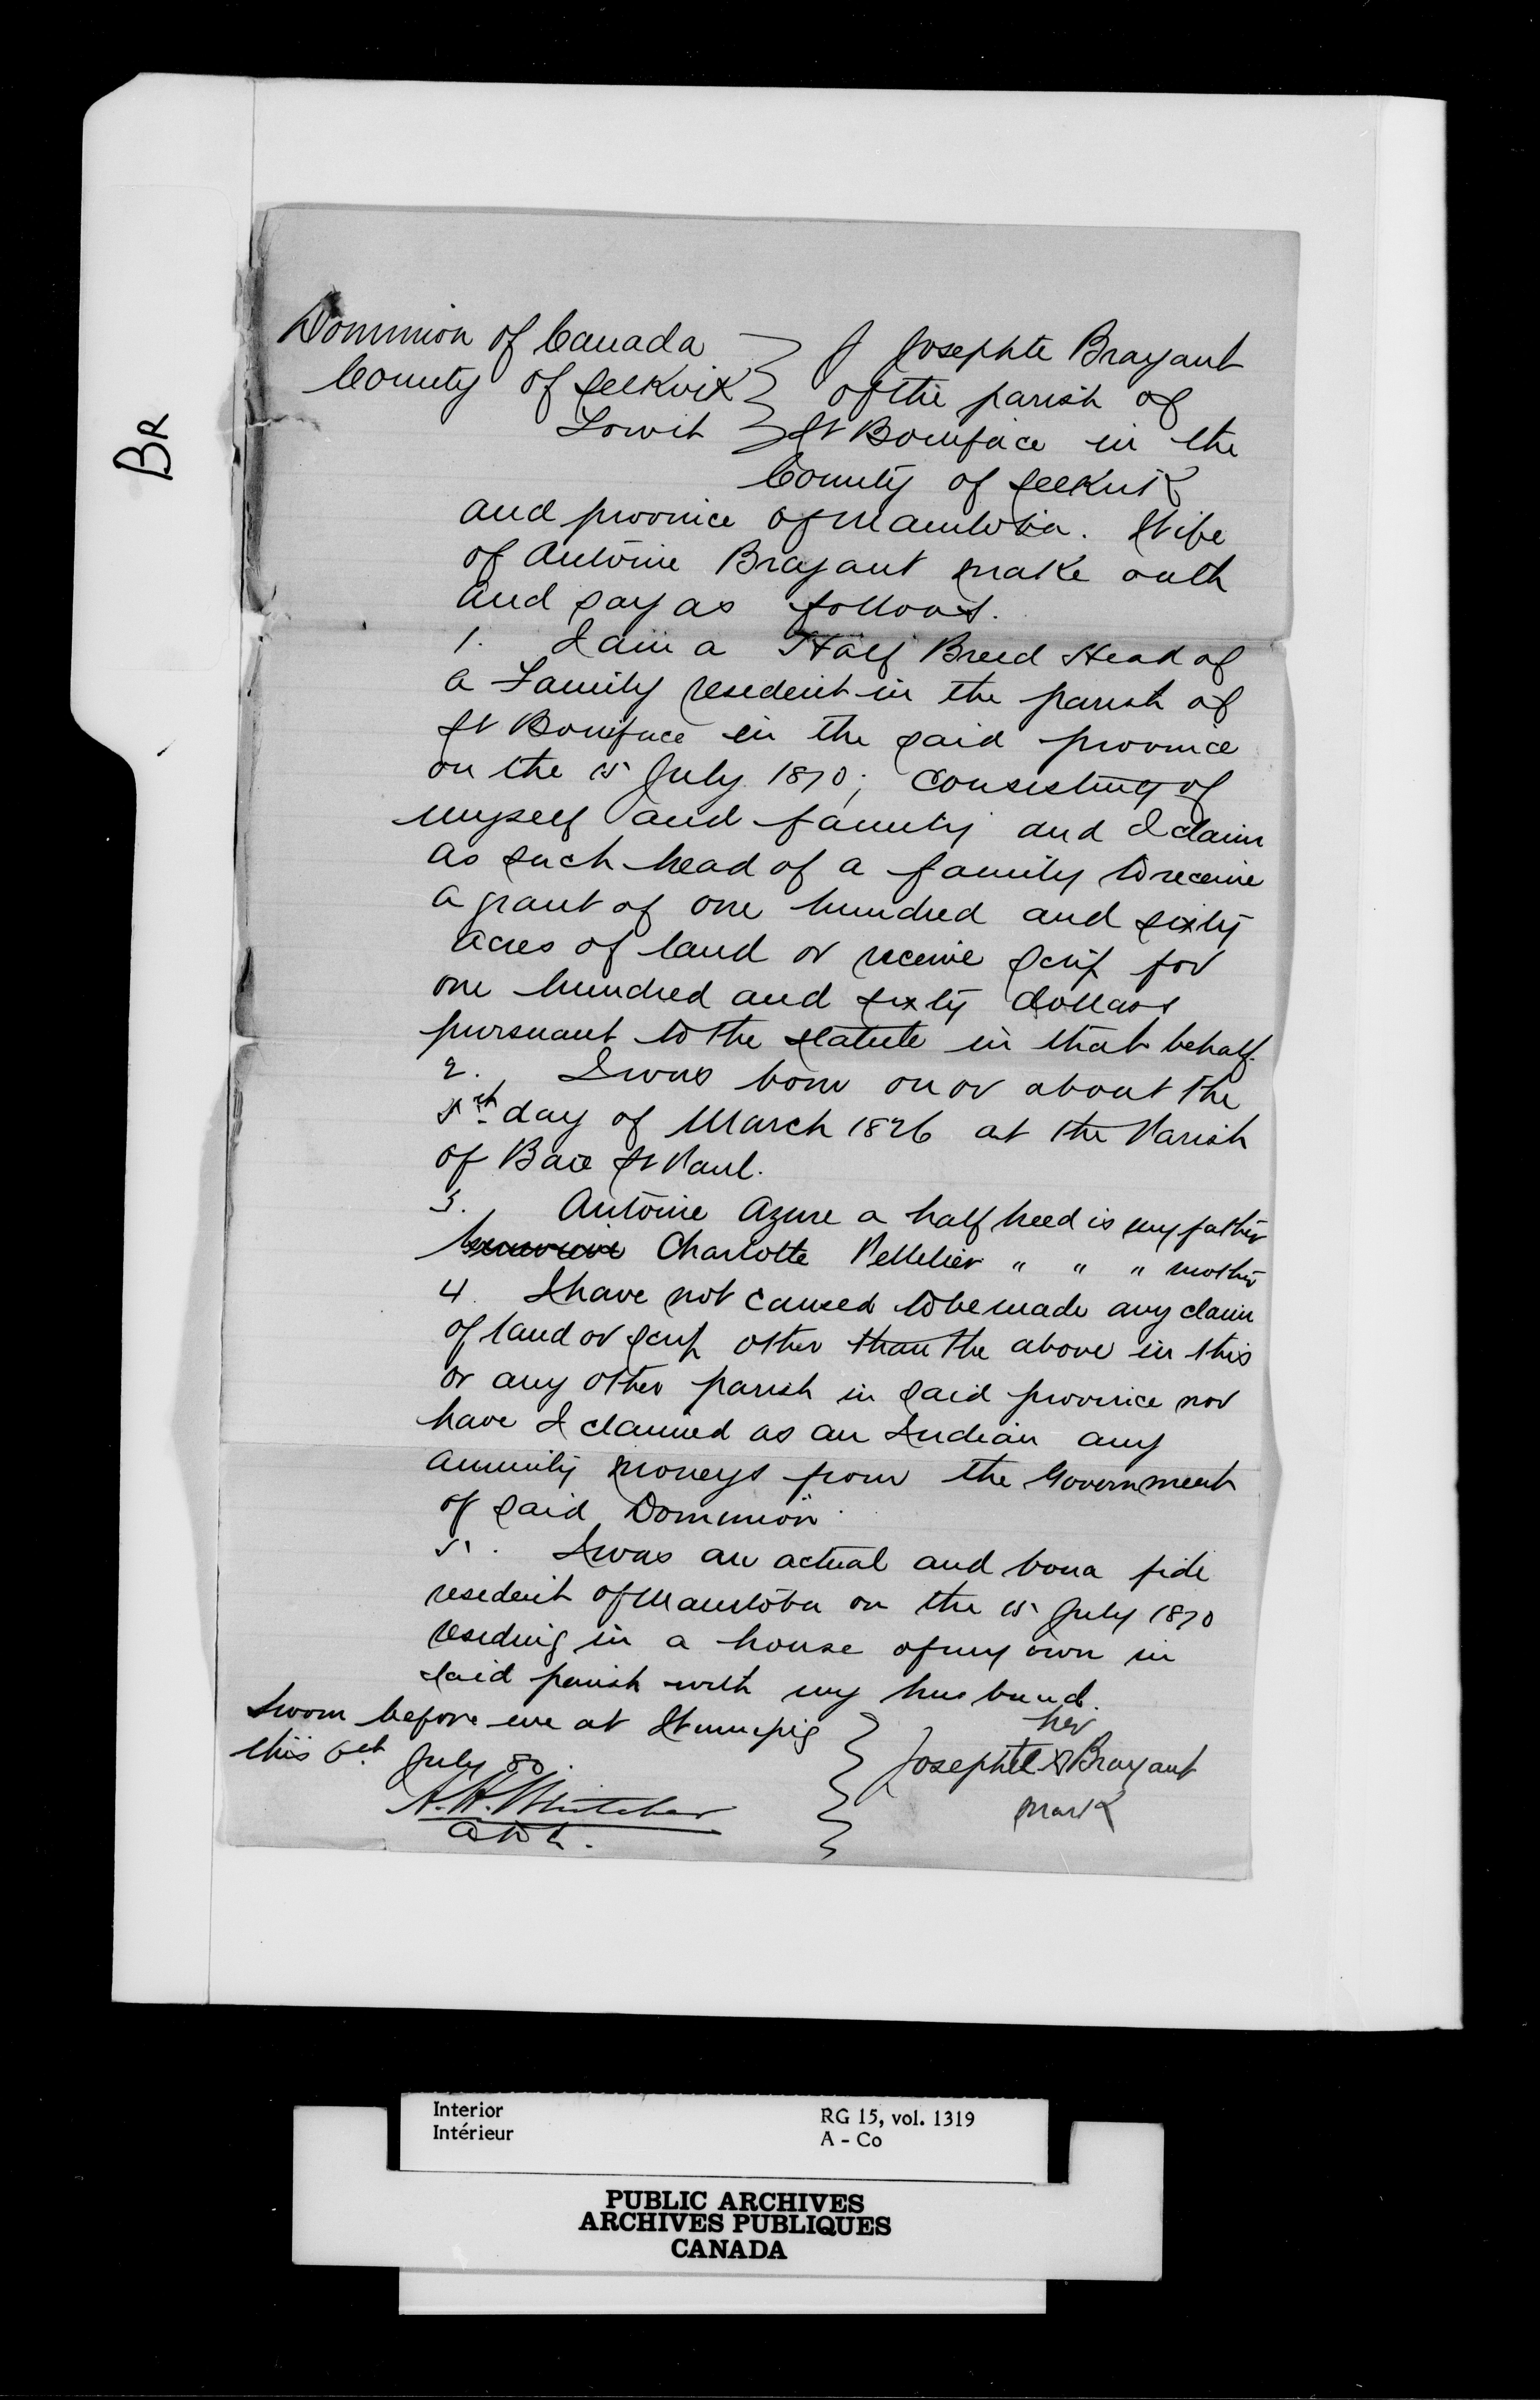 BR
Dominion of Canada
County of Selkirk
Towit
I Josephte Brayant
of the parish of
St Boniface in the
County of Selkirk
and province of Manitoba. Wife
of Antoine Brayant make oath
and say as follows.
1. I am a Half Breed Head of
a Family resident in the parish of
St Boniface in the said province
on the 15 July 1870; Consisting of
myself and family and I claim
as such head of a family to receive
a grant of one hundred and sixty
acres of land or receive scrip for
one hundred and sixty dollars
pursuant to the statute in that behalf.
2. I was born on or about the
day of March 1826 at the Parish
of Baie St Paul.
3. Antoine Azure a half breed is my father
Charlotte Pelletier " " " mother
4 I have not caused to be made any claim
of land or scrip other than the above in this
or any other parish in said province nor
have I claimed as an Indian any
annuity moneys from the Government
of said Dominion.
5. I was an actual and bona fide
resident of Manitoba on the 15 July 1870
residing in a house of my own in
said parish with my husband.
Sworn before me at Winnipeg
this 6th July 80.
her
Josephte X Brayant
mark
Interior
Intérieur
RG 15, vol. 1319
A - Co
PUBLIC ARCHIVES
ARCHIVES PUBLIQUES
CANADA